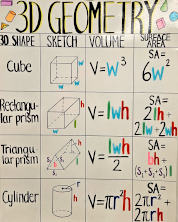 3D GEOMETRY
3D SHAPE SKETCH VOLUME SURFACE AREA
Cube w w w V=w³ SA=
6w²
Rectangu-
lar prism l w h V=lwh SA=
2lh +
2lw+2wh
Triangu-
lar prism V=lwh/2 SA=
bh+
(S₁+S₂+S₃)l
Cylinder r h V=πr²h SA=
2πr²+
2πrh